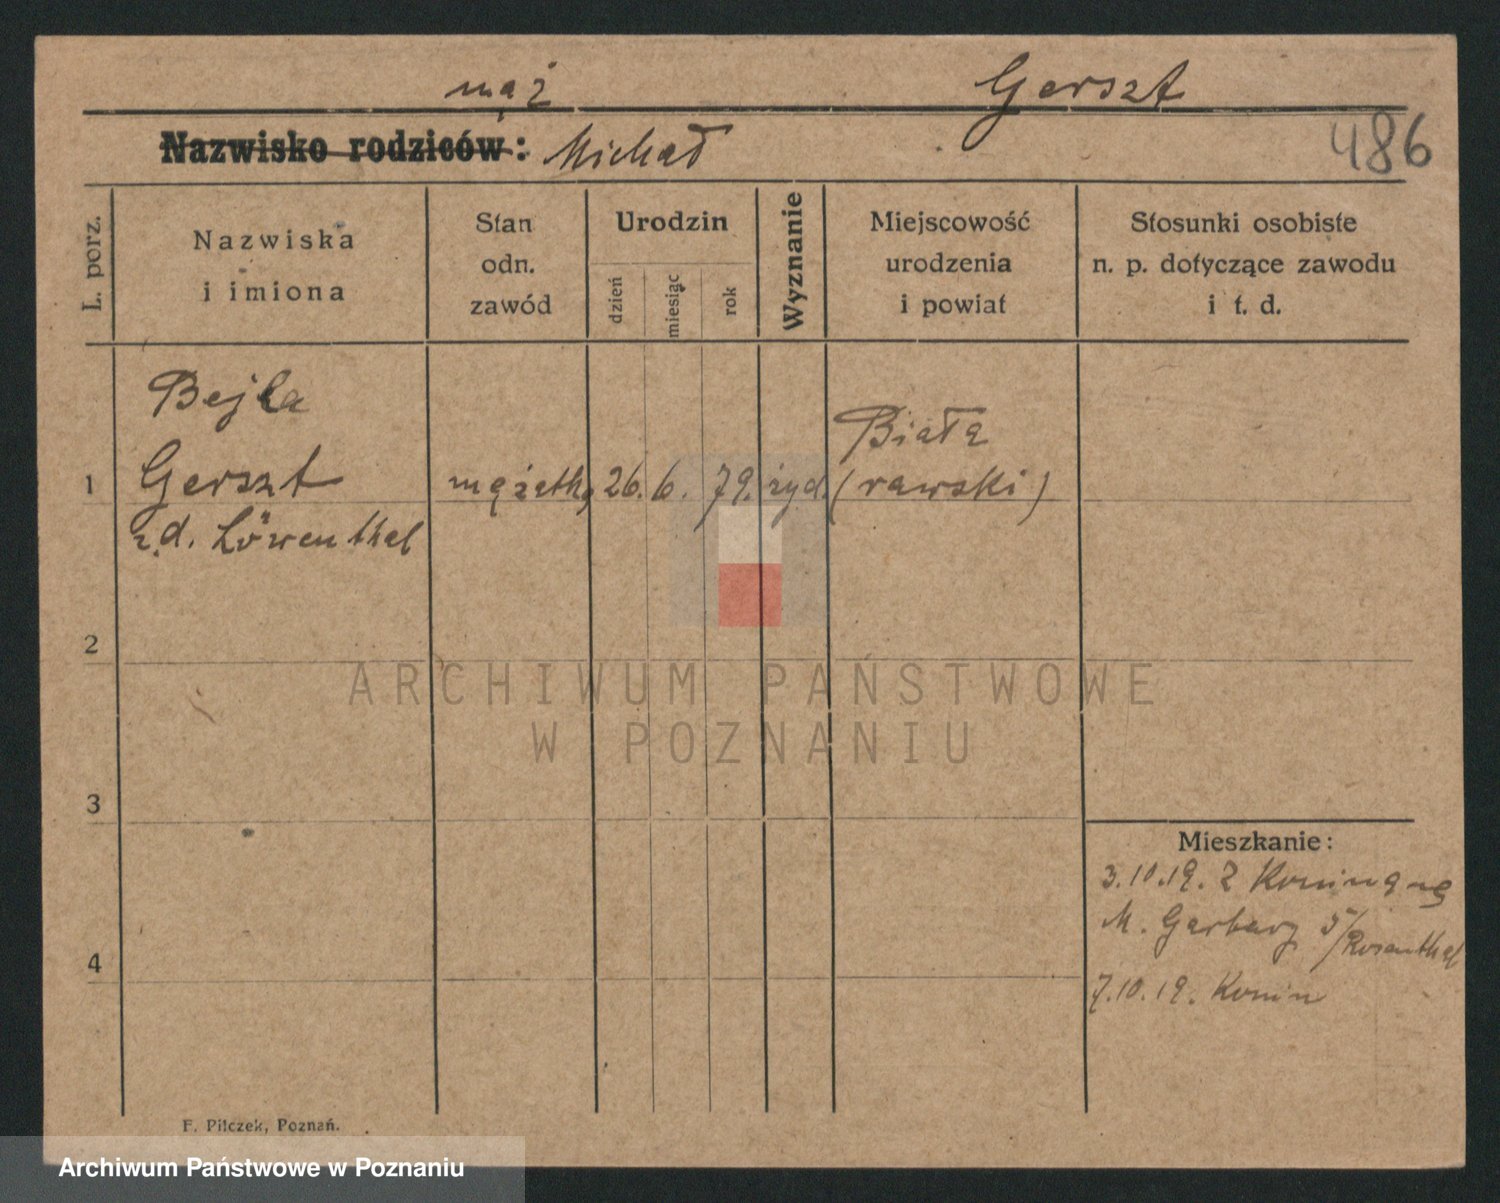 mąż Gerszt
Nazwisko rodziców: Michał
486
L. porz.
Nazwiska
i imiona
Stan
odn.
zawód
Urodzin
dzień
miesiąc
rok
Wyznanie
Miejscowość
urodzenia
i powiat
Stosunki osobiste
n. p. dotyczące zawodu
i t. d.
Bejla
Biała
1 Gerszt mężatka 26. 6. 79. żyd. (rawski)
z d. Löwenthal
2
3
4
Mieszkanie:
3.10.19. z Konina na
M. Garbary 5/Rosenthal
7.10.19. Konin
F. Pilczek, Poznań.
ARCHIWUM PAŃSTWOWE
W POZNANIU
Archiwum Państwowe w Poznaniu